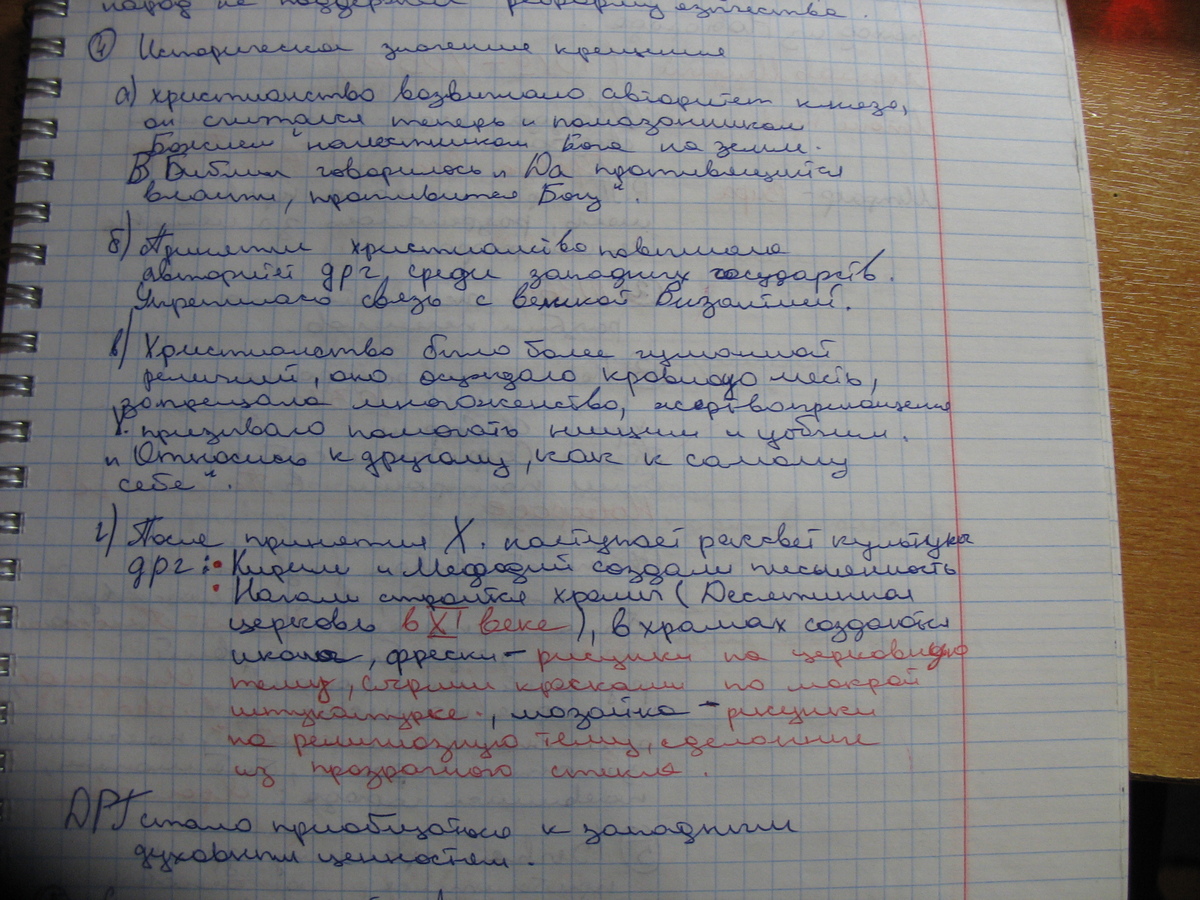 народ не поддержал реформу язычества.
4 Историческое значение крещения
а) христианство возвышало авторитет князя,
он считался теперь „ помазанником
Божием" наместником Бога на земле.
В Библии говорилось „ Да противящийся
власти, противится Богу".
б) Принятие христианство повышало
авторитет дрг, среди западных государств.
Укреплласо связь с великой Византией.
в) Христианство было более гуманной
религией, оно осуждало кровную месть,
запрещала многоженство, жертвоприношение
Х. призывало помогать нищим и убогим.
„ Относись к другому, как к самому
себе".
г) После принятия Х. наступает рассвет культуры
дрг: • Кирилл и Мефодий создали письменность
• Начали строится храмы (Десятинная
церковь в XI веке), в храмах создаются
иконы, фрески - рисунки на церковную
тему, сырыми красками по мокрой
штукатурке., мозаика - рисунки
на религиозную тему, сделанные
из прозрачного стекла.
ДРГ стало приобщаться к западным
духовным ценностям.